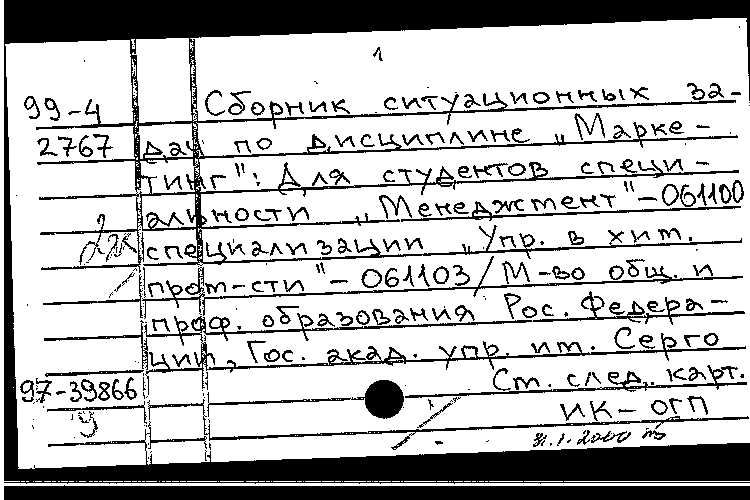 1
99-4 Сборник ситуационных за-
2767 дач по дисциплине „Марке-
тинг": Для студентов специ-
альности „Менеджмент"-061100
2к специализации „Упр. в хим.
пром-сти"-061103/М-во общ. и
проф. образования Рос. Федера-
ции, Гос. акад. упр. им. Серго
97-39866 Ст. след. карт.
9 ИК-ОГП
31.1.2000